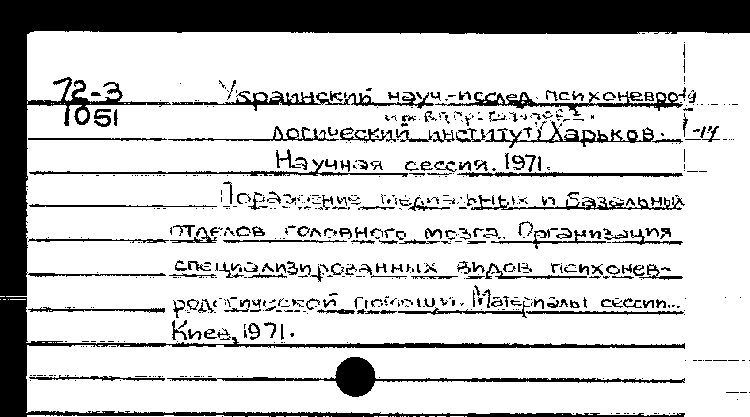 72-3 Украинский науч.-исслед. психоневро-
1051
логический институт, Харьков.
-14
Научная сессия. 1971.
Поражение медиальных и базальных
отделов головного мозга. Организация
специализированных видов психонев-
рологической помощи. Материалы сессии...
Киев, 1971.